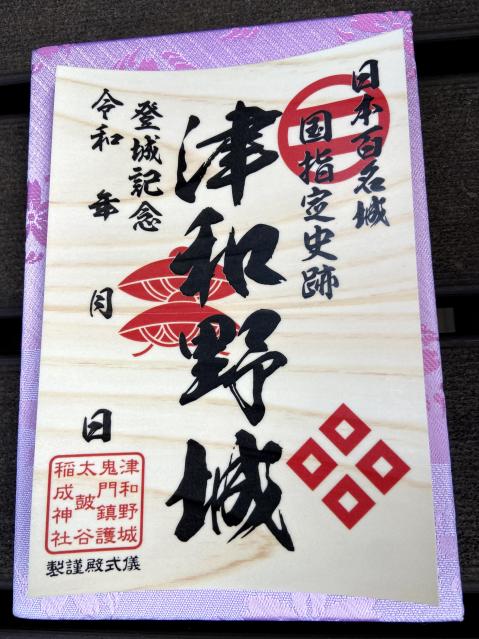 日本百名城
国指定史跡
津和野城
登城記念
令和 年 月 日
津和野城
鬼門鎮護
太鼓谷
稲成神社
儀式殿謹製